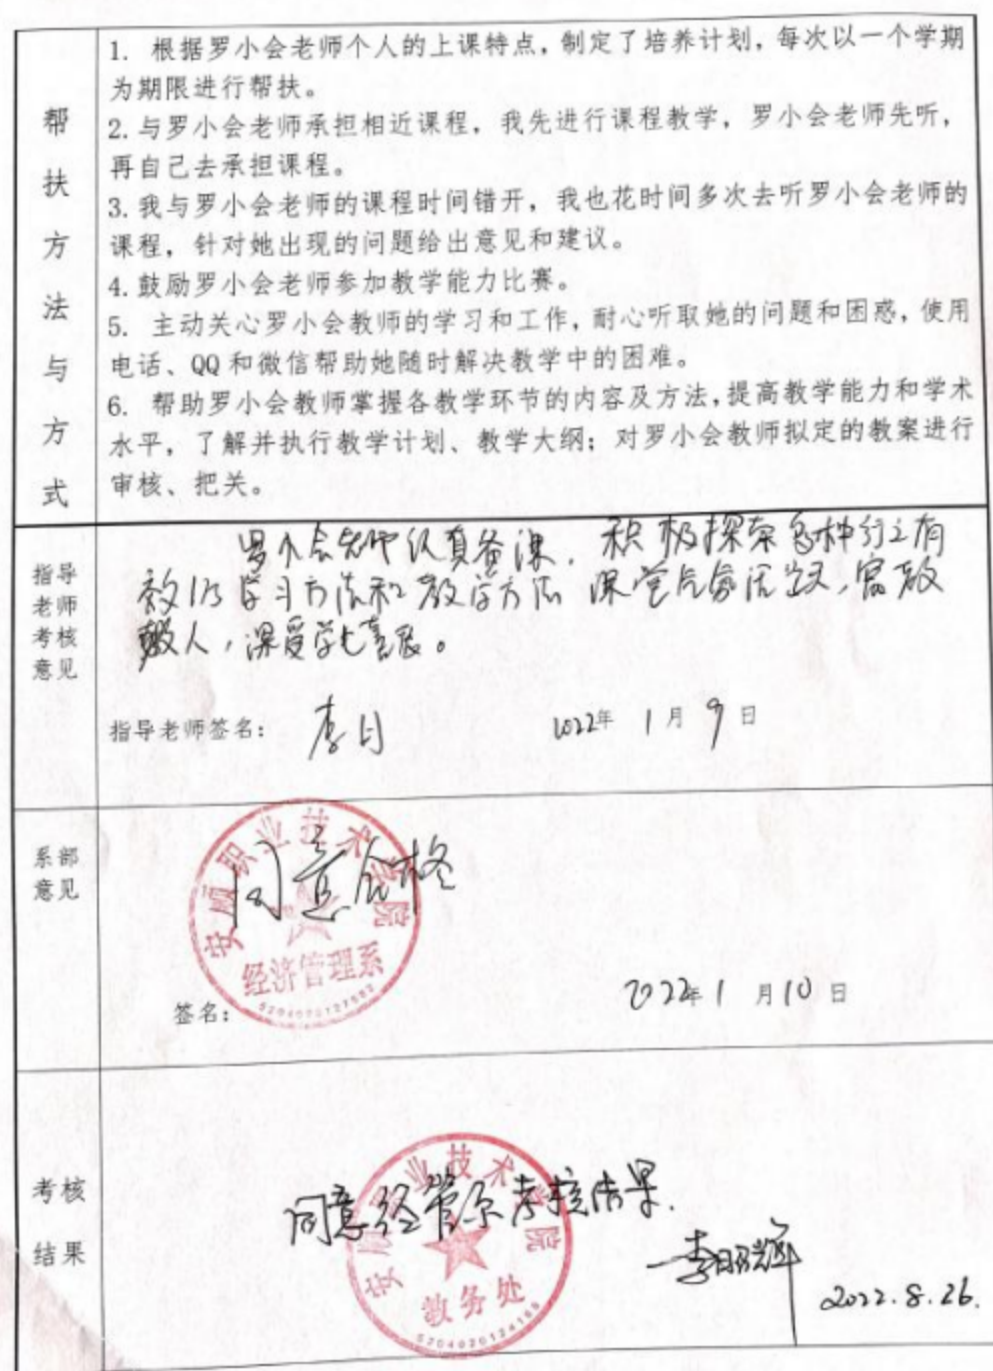 帮扶方法与方式
1. 根据罗小会老师个人的上课特点，制定了培养计划，每次以一个学期
为期限进行帮扶。
2.与罗小会老师承担相近课程，我先进行课程教学，罗小会老师先听，
再自己去承担课程。
3.我与罗小会老师的课程时间错开，我也花时间多次去听罗小会老师的
课程，针对她出现的问题给出意见和建议。
4.鼓励罗小会老师参加教学能力比赛。
5. 主动关心罗小会教师的学习和工作，耐心听取她的问题和困惑，使用
电话、QQ和微信帮助她随时解决教学中的困难。
6. 帮助罗小会教师掌握各教学环节的内容及方法，提高教学能力和学术
水平，了解并执行教学计划、教学大纲；对罗小会教师拟定的教案进行
审核、把关。
指导
老师
考核
意见
罗小会老师认真备课，积极探索各种行之有
效的学习方法和教学方法 课堂气氛活跃，
人，深受学生喜
指导老师签名： 李 2022年 1月 9日
系部
意见
同意合格
安顺职业技术学院
经济管理系
签名：
2022年1月10日
考核
结果
同意经管系考核结果.
安顺职业技术学院
教务处
2022.8.26.